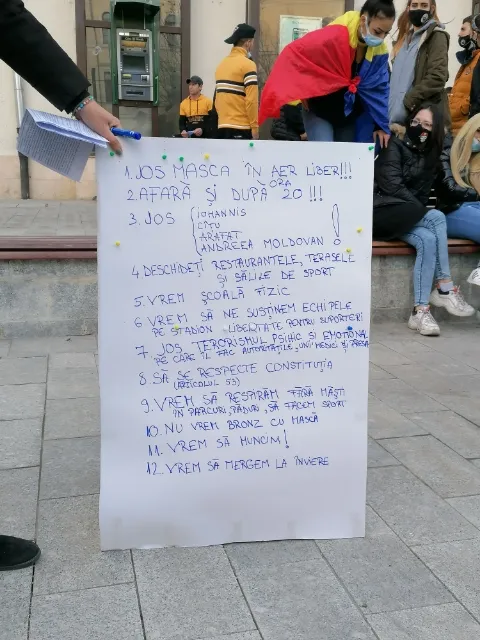 1. JOS MASCA ÎN AER LIBER!!!
2. AFARĂ ȘI DUPĂ ORA 20 !!!
3. JOS
IOHANNIS
CÎȚU
ARAFAT
ANDREEA MOLDOVAN
!
4. DESCHIDEȚI RESTAURANTELE, TERASELE
ȘI SĂLILE DE SPORT
5. VREM ȘCOALĂ FIZIC
6. VREM SĂ NE SUSȚINEM ECHIPELE
PE STADION LIBERTATE PENTRU SUPORTERI
7. JOS TERORISMUL PSIHIC ȘI EMOȚIONAL
PE CARE ÎL FAC AUTORITĂȚILE, UNII MEDICI ȘI PRESA
8. SĂ SE RESPECTE CONSTITUȚIA
(ARTICOLUL 53)
9. VREM SĂ RESPIRĂM FĂRĂ MĂȘTI
ÎN PARCURI, PĂDURI, SĂ FACEM SPORT
10. NU VREM BRONZ CU MASCĂ
11. VREM SĂ MUNCIM!
12. VREM SĂ MERGEM LA ÎNVIERE